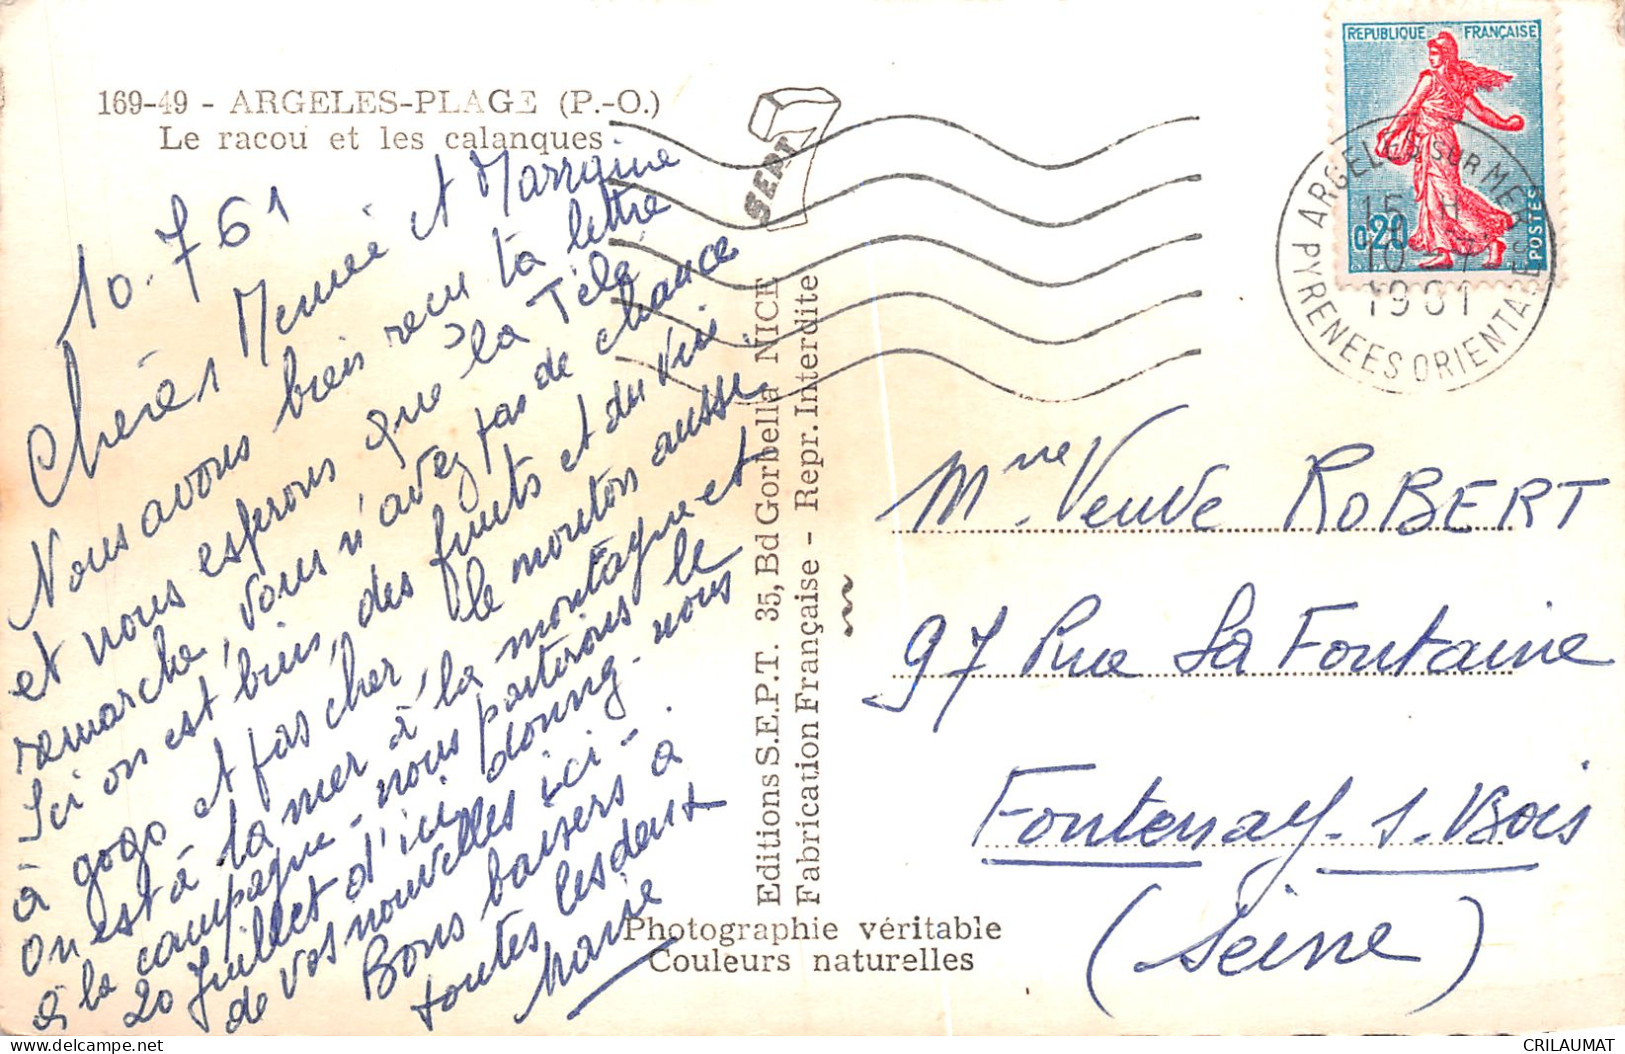 169-49 - ARGELES-PLAGE (P.-O.)
Le racou et les calanques
10.7 61
Chères Mémé et Marraine
Nous avons bien reçu ta lettre
et nous esperons que la Télé
remarche, vous n'avez pas de chance
Ici on est bien, des fruits et du vin
à gogo et pas cher, le mouton aussi
on est à la mer à la montagne et
à la campagne - nous partirons le
20 Juillet d'ici donne-nous
de vos nouvelles ici -
Bons baisers à
toutes les deux
Marie
SEPT
Editions S.E.P.T. 35, Bd Gorbella NICE
Fabrication Française - Repr. Interdite
Photographie véritable
Couleurs naturelles
REPUBLIQUE FRANÇAISE
0,20
POSTES
ARGELES SUR MER
15 H
10-7
1961
PYRENEES ORIENTALES
Mme Veuve ROBERT
97 Rue La Fontaine
Fontenay-s-Bois
(Seine)
CRILAUMAT